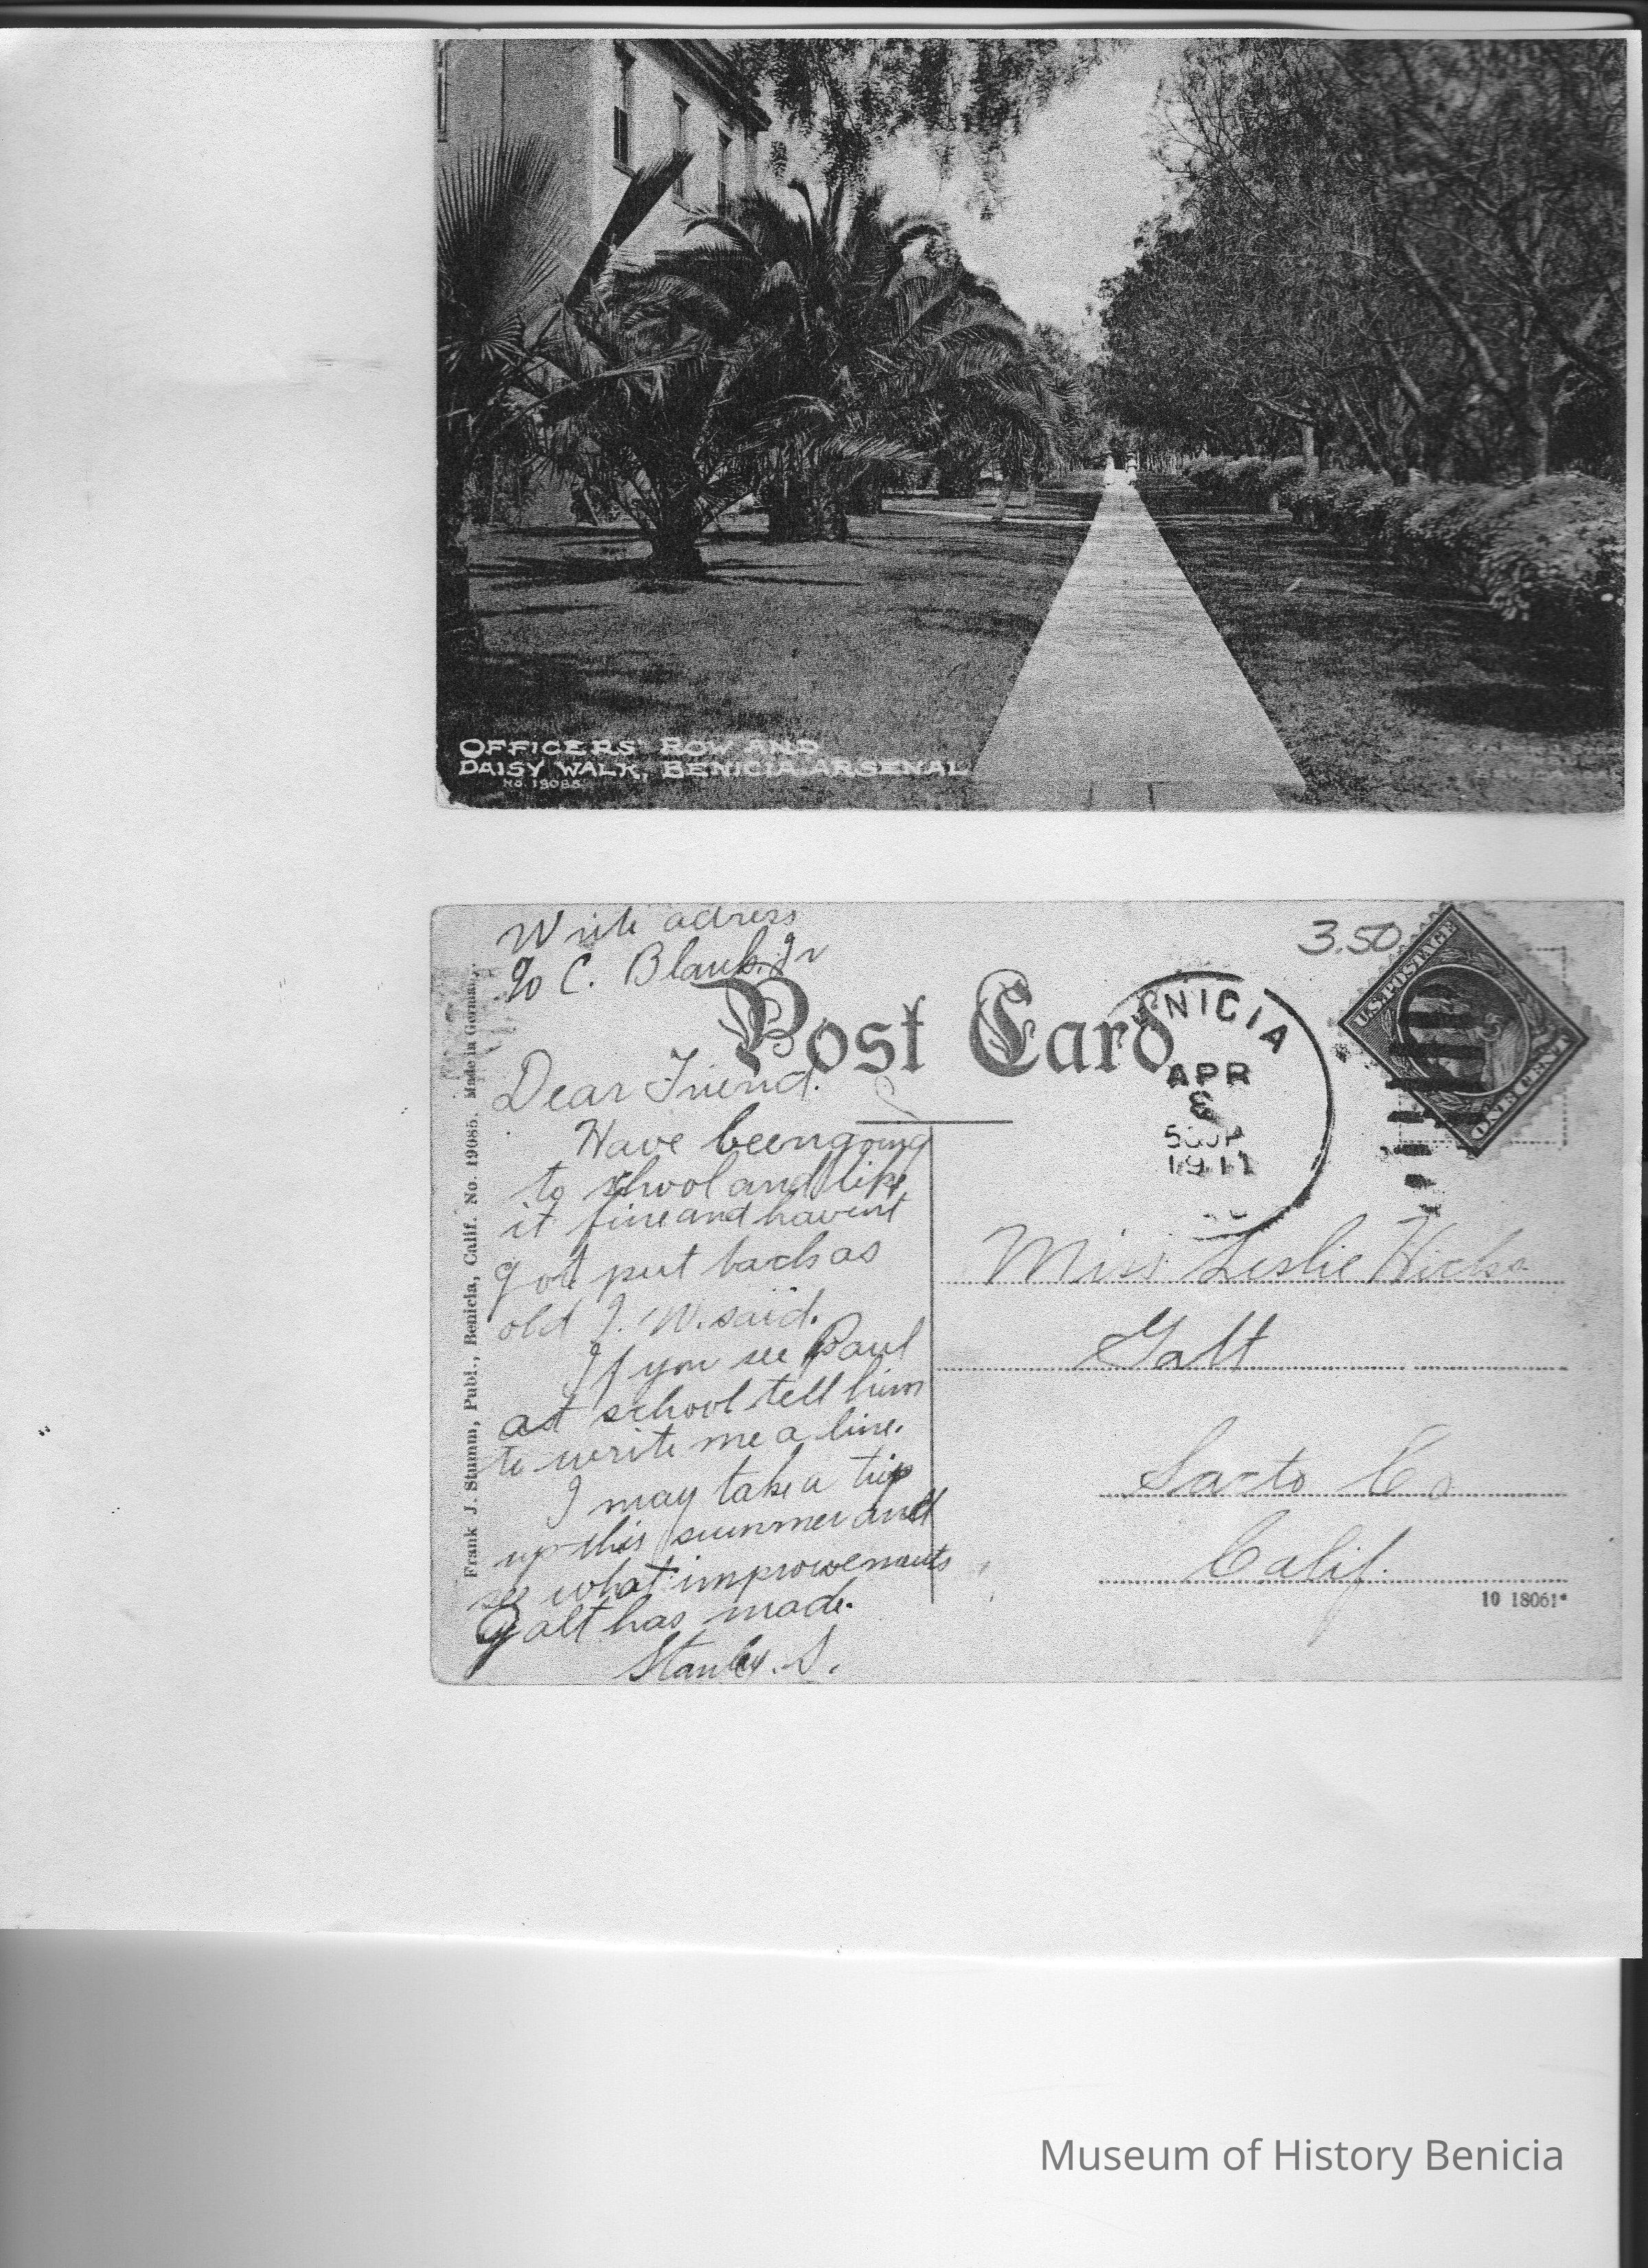 OFFICERS' ROW AND
DAISY WALK, BENICIA ARSENAL
No. 19085
Write adress
c/o C. Blank. Jr
3.50
Post Card
U.S. POSTAGE
ONE CENT
ENICIA
APR
5 30 P
1911
Frank J. Stumm, Publ., Benicia, Calif. No. 19085. Made in Germany.
Dear Friend.
Have been going
to school and like
it fine and havent
got put back as
old J. W. said.
If you see Paul
at school tell him
to write me a line.
I may take a trip
up this summer and
see what improvements
Galt has made.
Stanley. S.
Miss Leslie Hicks
Galt
Sacto Co
Calif.
10 18061*
Museum of History Benicia